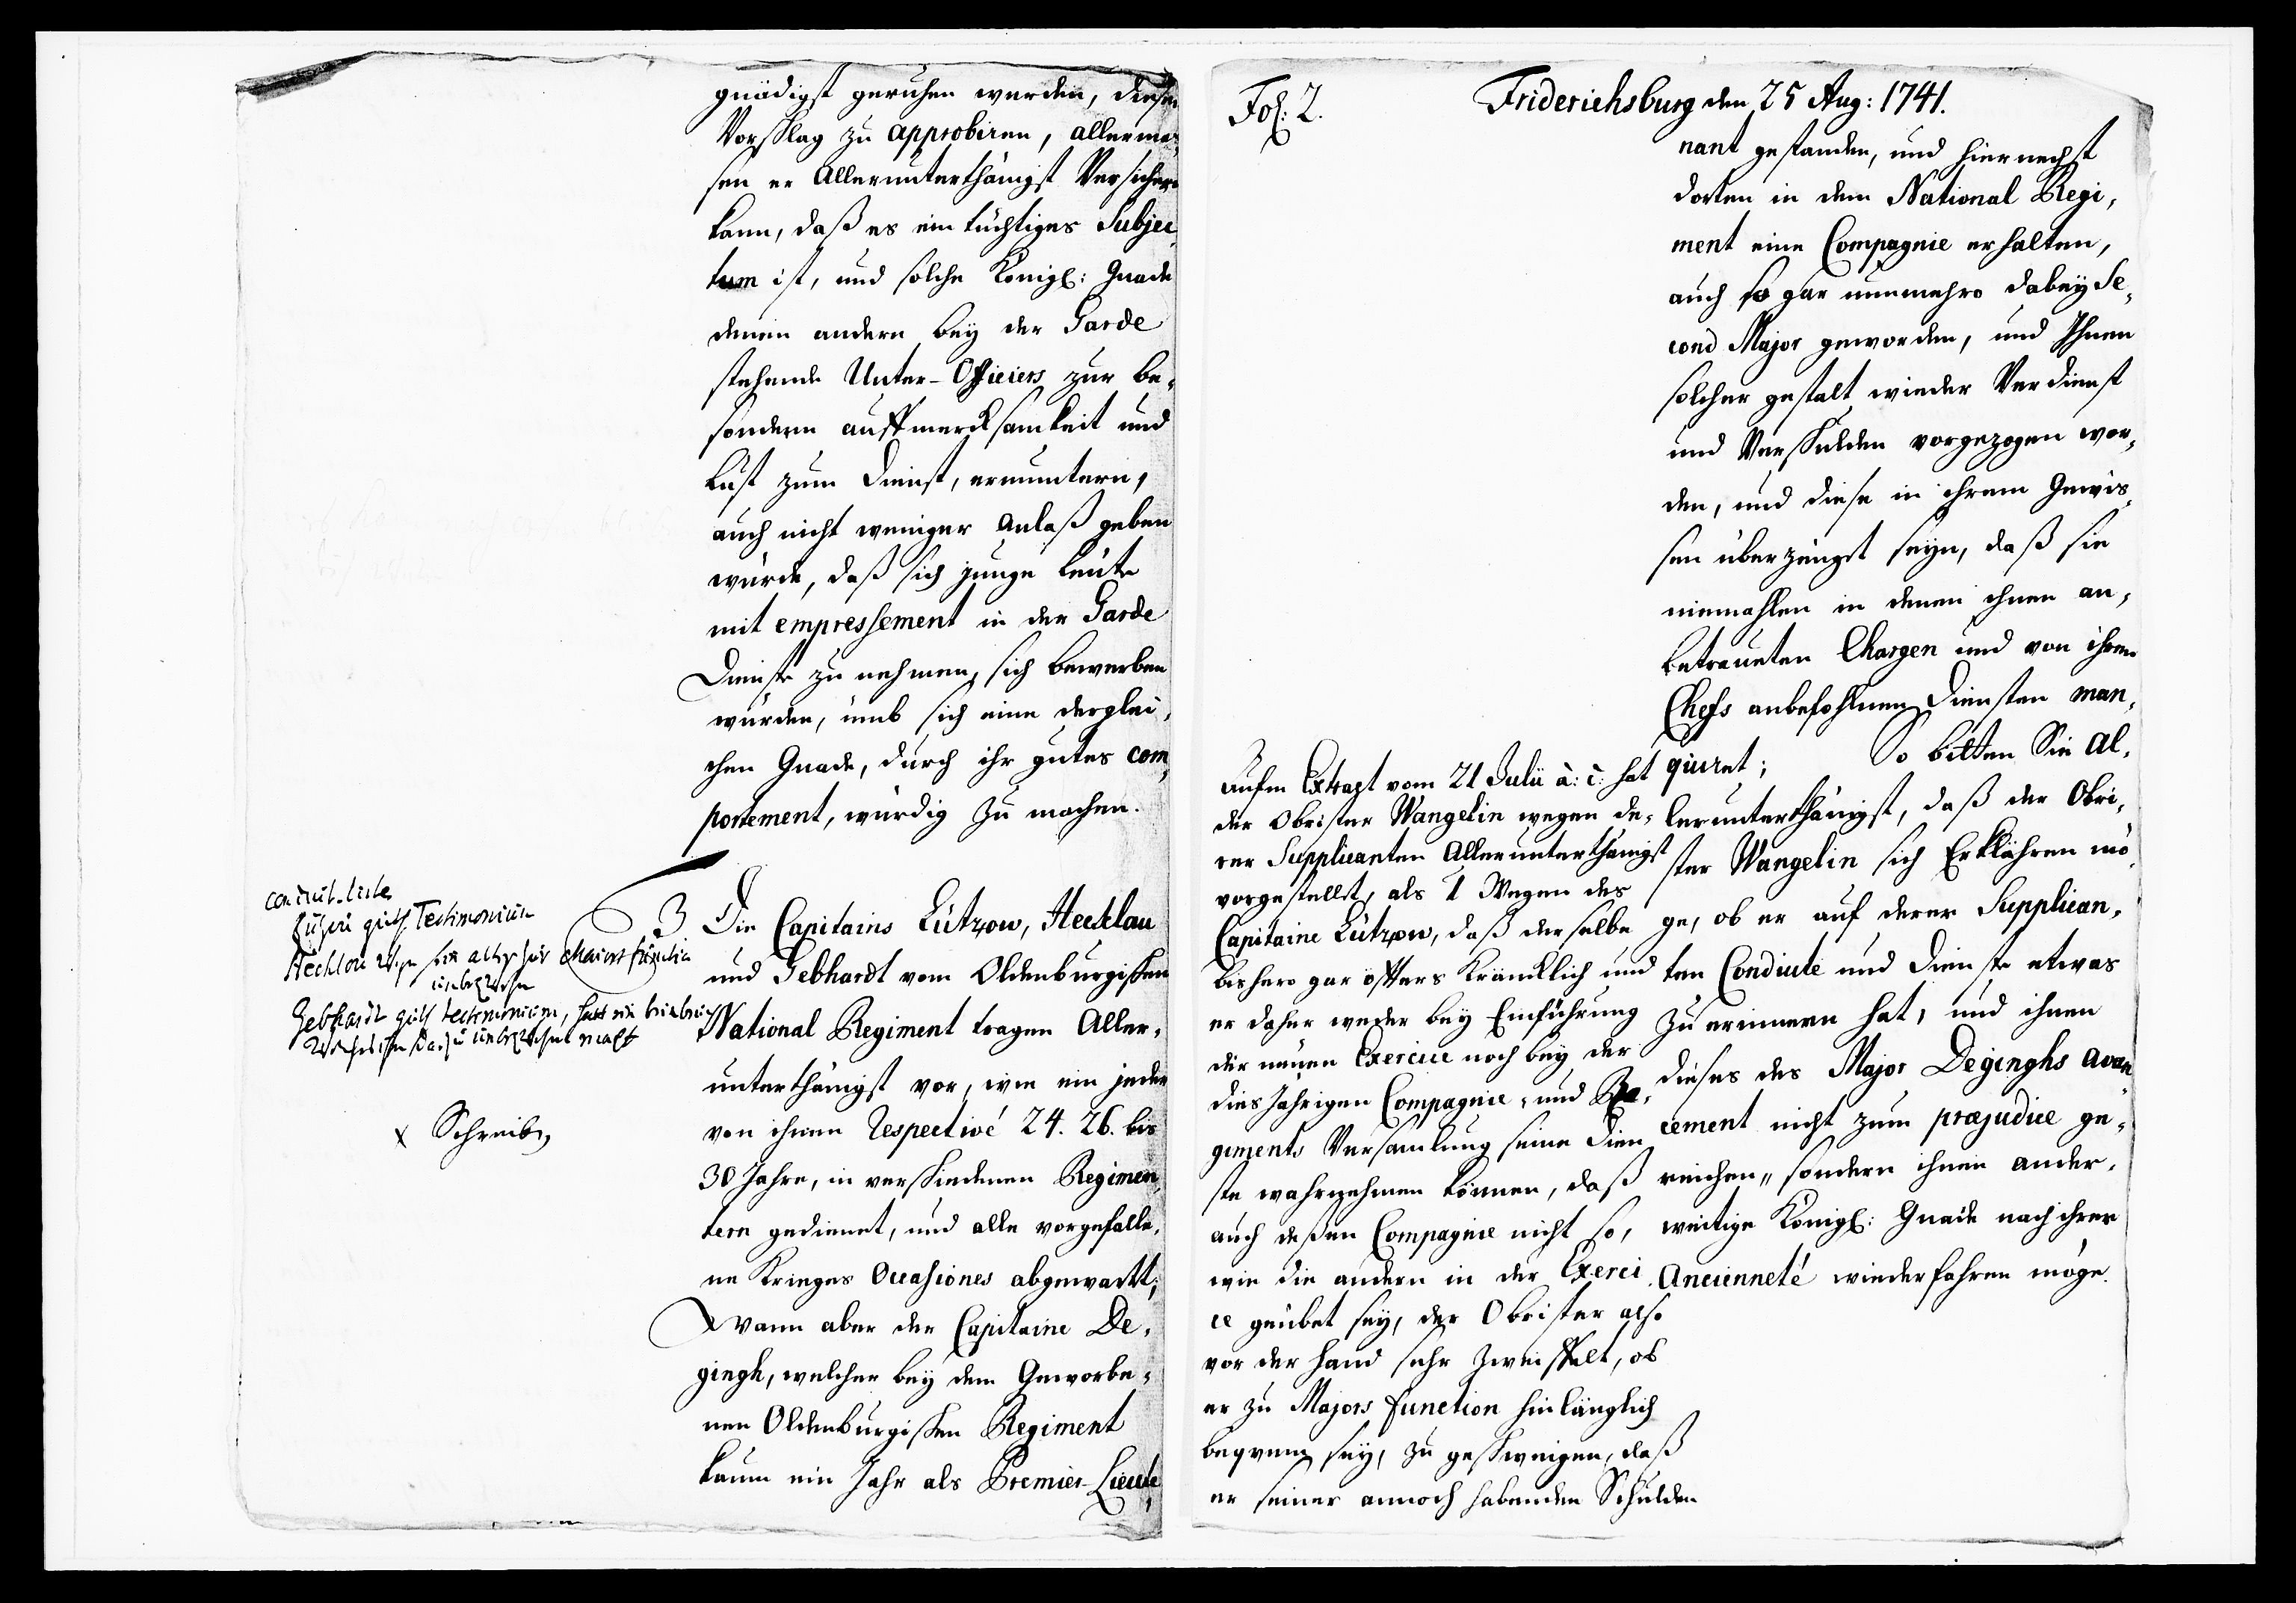 gnädigst geruhen werden, diesen
Vorschlag zu approbiren, allerma,
sen er Allerunterthänigst Versichern
kann, daß es ein tüchtiges Subjec,
tum ist, und solche Königl: Gnade
denen andern bey der Garde
stehende Unter-Officiers zur be,
sondern auffmercksamkeit und
Lust zum Dienst, ermuntern,
auch nicht weniger anlaß geben
würde, daß sich junge Leute
mit empressement in der Garde
Dienste zu nehmen, sich bewerben
würden, umb sich eine derglei,
chen Gnade, durch ihr gutes com,
portement, würdig zu machen.
conduit-liste
guth Testimonium
Hechlou
Gebhardt guth testimonium,
x Schreiben
3 Die Capitains Lützow, Hecklau
und Gebhardt vom Oldenburgischen
National Regiment tragen Aller,
unterthänigst vor, wie ein jeder
von ihnen respectivé 24. 26. bis
30 Jahre, in verschiedenen Regimen,
tern gedienet, und alle vorgefalle,
ne Krieges Occasiones abgewartt,
Wann aber der Capitaine De,
gingh, welcher bey dem Geworbe,
nen Oldenburgischen Regiment
kaum ein Jahr als Premier-Lieute,
Fol: 2.
Friderichsburg den 25 Aug: 1741.
nant gestanden, und hiernechst
dorten in dem National Regi,
ment eine Compagnie erhalten,
auch so gar nunmehro dabey Se,
cond Major geworden, und Ihnen
solcher gestalt wieder Verdienst
und Verschulden vorgezogen wor,
den, und diese in ihrem Gewis,
sen überzeugt seyn, daß sie
niemahlen in denen ihnen an,
betraueten Chargen und von ihrem
Chefs anbefohlnen Diensten man,
quiret; So bitten Sie al,
lerunterthänigst, daß der Obri,
ster Wangelin sich Erklähren mö,
ge, ob er auf derer Supplican,
ten Conduite und Dienste etwas
zu erinnern hat, und ihnen
dieses des Major Deginghs avan,
cement nicht zum præjudice ge,
reichen, sondern ihnen ander,
weitige Königl: Gnade nach ihrer
Ancienneté wiederfahren möge.
Aufm Extract vom 21 Julii a: c: hat
der Obrister Wangelin wegen de,
rer Supplicanten Allerunterthänigst
vorgestellet, als 1 Wegen des
Capitaine Lützow, daß derselbe
bishero gar öffters Kräncklich und
er daher weder bey Einführung
der neuen Exercice noch bey der
diesjährigen Compagnie, und Re,
giments Versamlung seine Dien
ste wahrnehmen können, daß
auch deßen Compagnie nicht so,
wie die andern in der Exerci,
ce geübet sey, der Obrister also
vor der Hand sehr zweiffelt, ob
er zu Majors function hinlänglich
beqvem sey, zu geschweigen, daß
er seiner annoch habenden Schulden